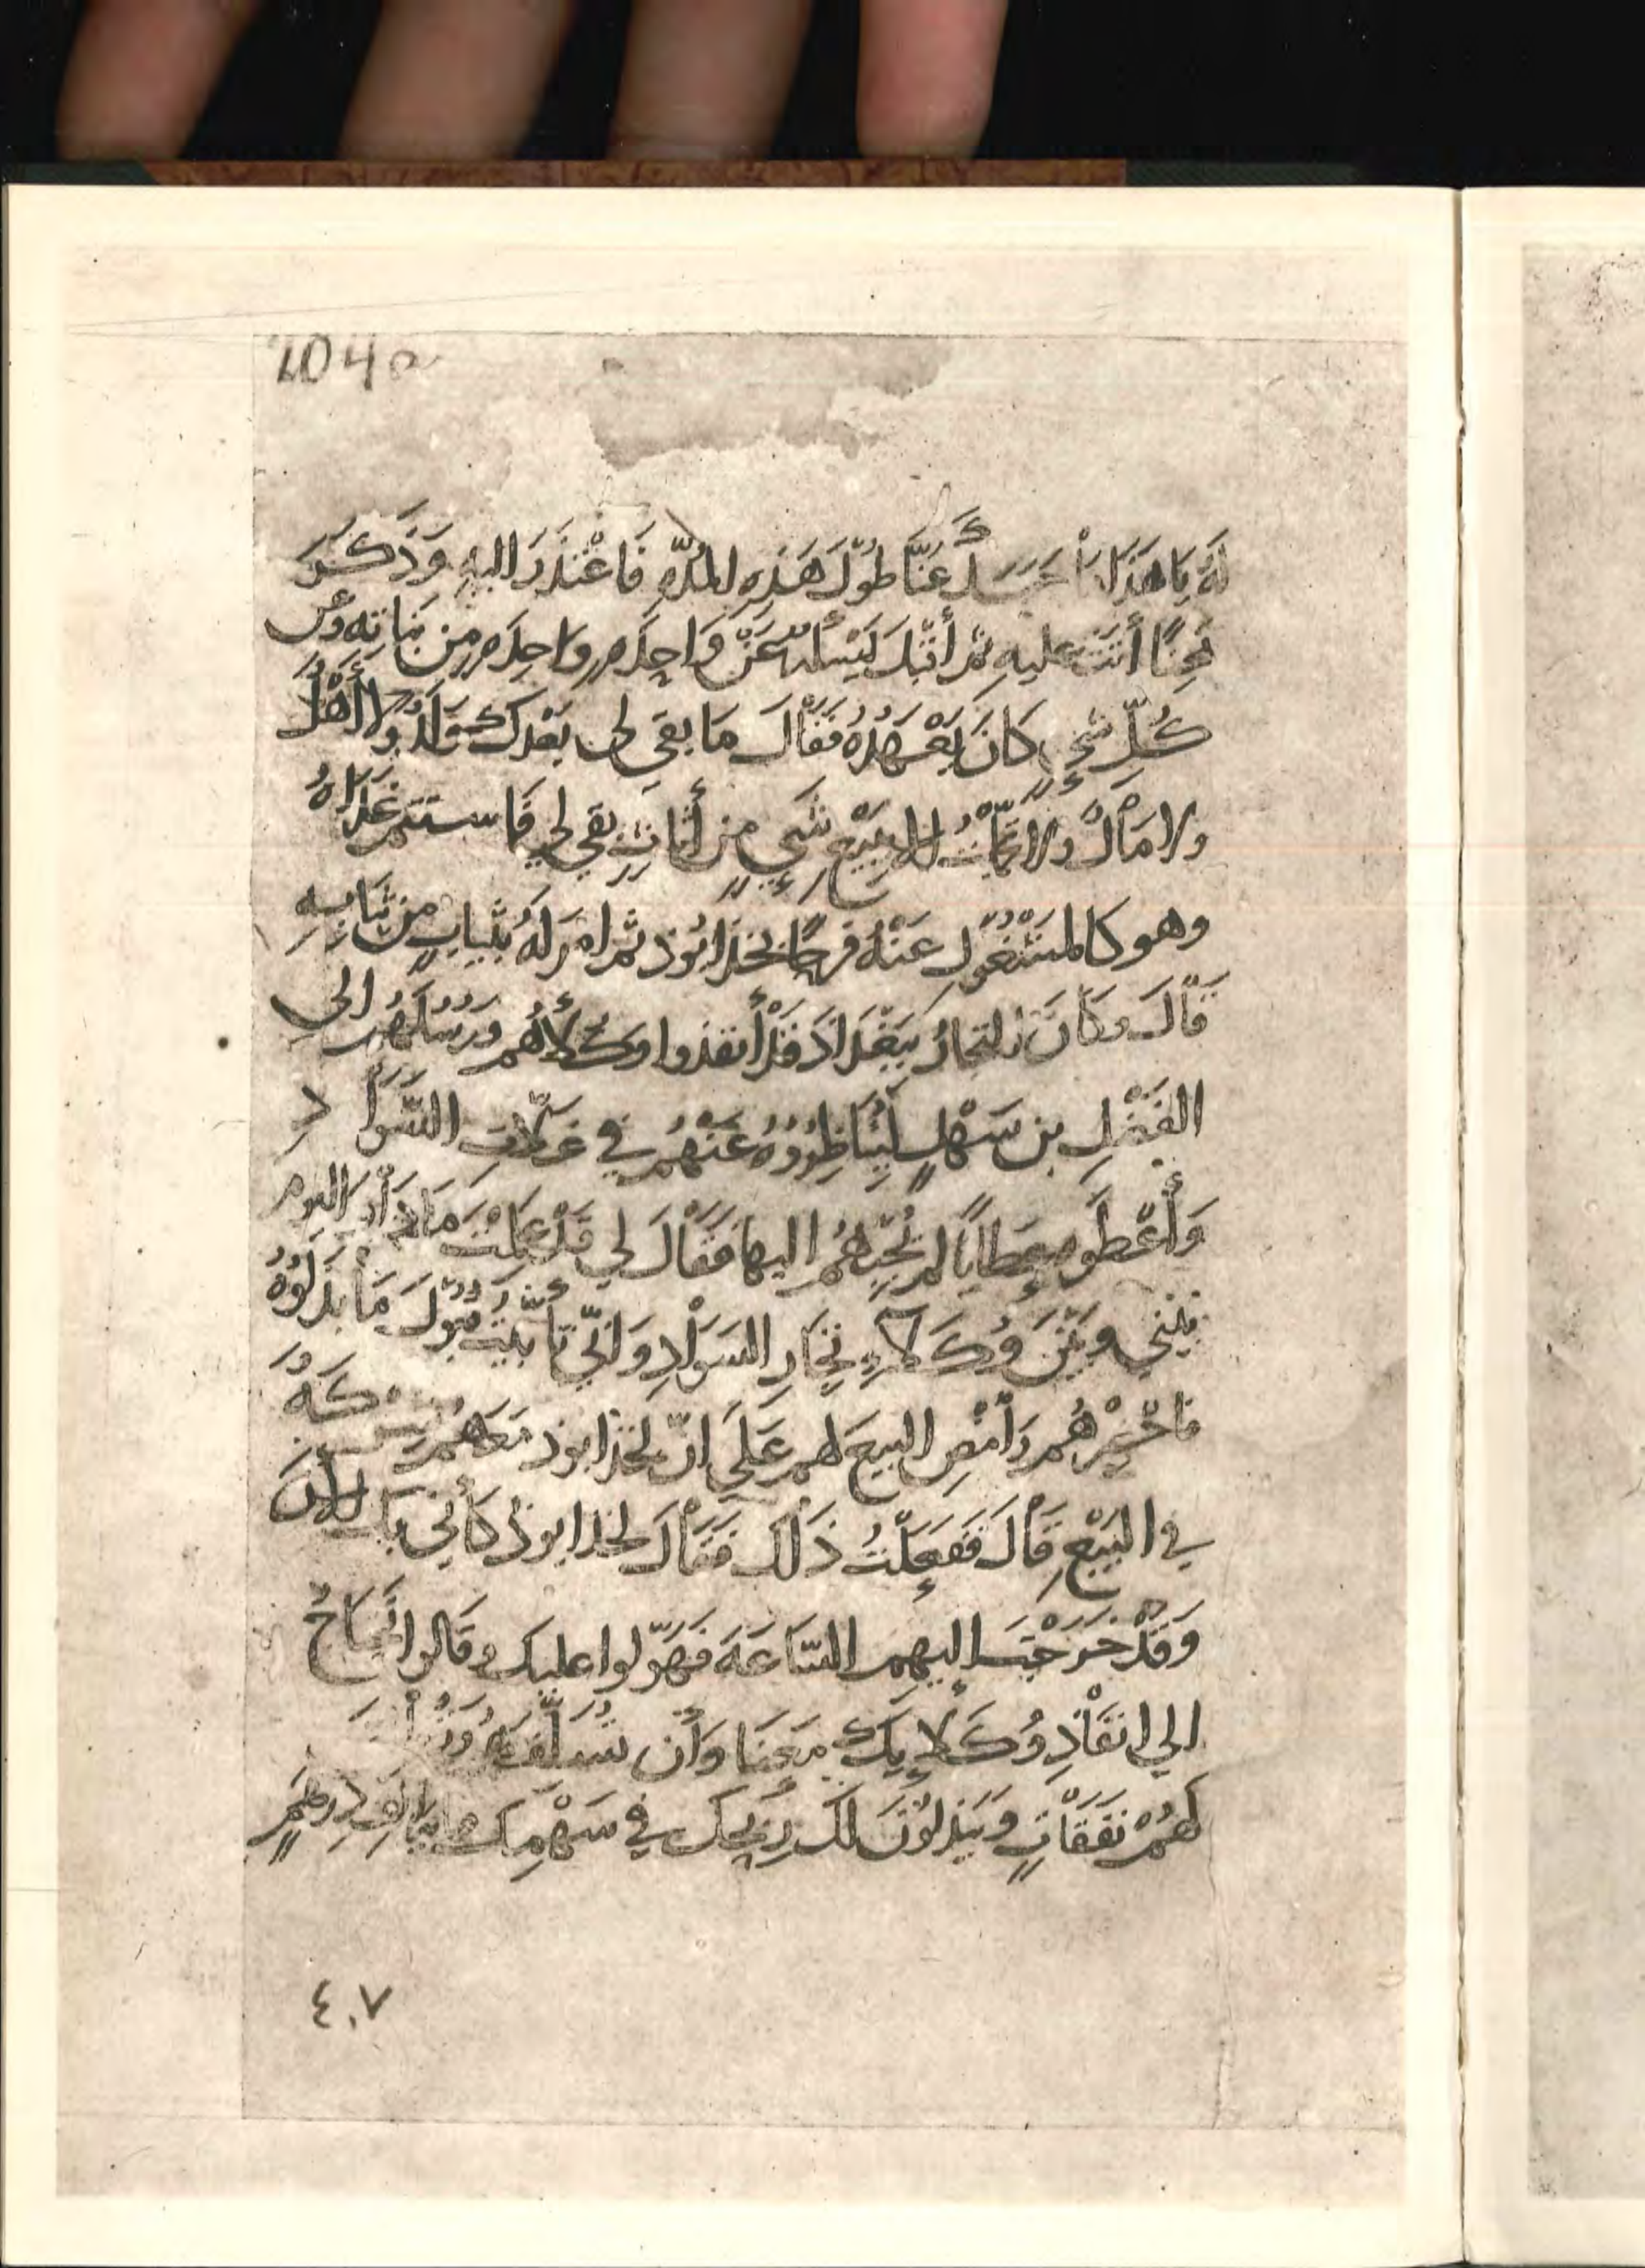 204a
لَهُ يَا هَذَا مَا حَبَسَكَ عَنَّا طُوْلَ هَذِهِ المُدَّهِ فَاعْتَذَرَ اليهِ وَذَكَرَ
مِحَنًا أَتَتْ عليهِ ثمّ أَقْبَلَ يَسْلُهُ عَنْ وَاحِدَه وَاحِدَه مِن بَنَاتِه وعن
كُلِّ شيءٍ كَانَ يَعْهَدُهُ فَقَالَ مَا بقي لي بَعْدَكَ وَلَدٌ وَلا أَهْلٌ
ولا مَالٌ ولا شيءٍ من أَثَاثٍ بقي لي فاستتم غَدَاهُ
وهو كالمَشْغُولِ عَنْهُ فرحًا بخذابُوذ ثم امرَ لهُ بثيابٍ مِن ثيَابِهِ
قَالَ وكَانَ التجارُ بِبَغْدَادَ قَدْ أَنفذوا وُكَلَأَهُم ورُسُلَهُم الى
الفَضْلِ بن سَهْلٍ لِيُنَاظِرُوهُ عَنْهُمْ في غَلّاتِ السَّوَادِ
وَأَعْطَوهُ عَطَايَا لم يُجِبْهُم اليها فَقَالَ لي قَدْ عَلِمْتَ مَا دَارَ اليوم
بَيْني وبَيْنَ وُكَلَاءِ تجّارِ السَوَادِ وَانِّي تَأَبَّيْتُ قَبُوْلَ مَا بَذَلُوهُ
فاخْبِرْهُم وأَمْضِ البيع لهم عَلَى انّ لخذابوذ مَعَهم شركَةً
في البَيْعِ قَالَ فَفَعَلْتُ ذَلكَ فَقَالَ لخذابوذ كَأَنّي بك الآنَ
وَقَدْ خَرَجْتَ إليهم السَّاعَةَ فَهَوَّلُوا عليك وقَالُوا تحتَاجُ
الى انفَاذِ وُكَلَايِكَ مَعَنَا وَأَن تُسَلِّفَهُم
لَهُمْ نَفَقَاتٍ وَيَبْذلونَ لكَ رِبحكَ في سَهْمِكَ درهَمٍ
٤٠٧